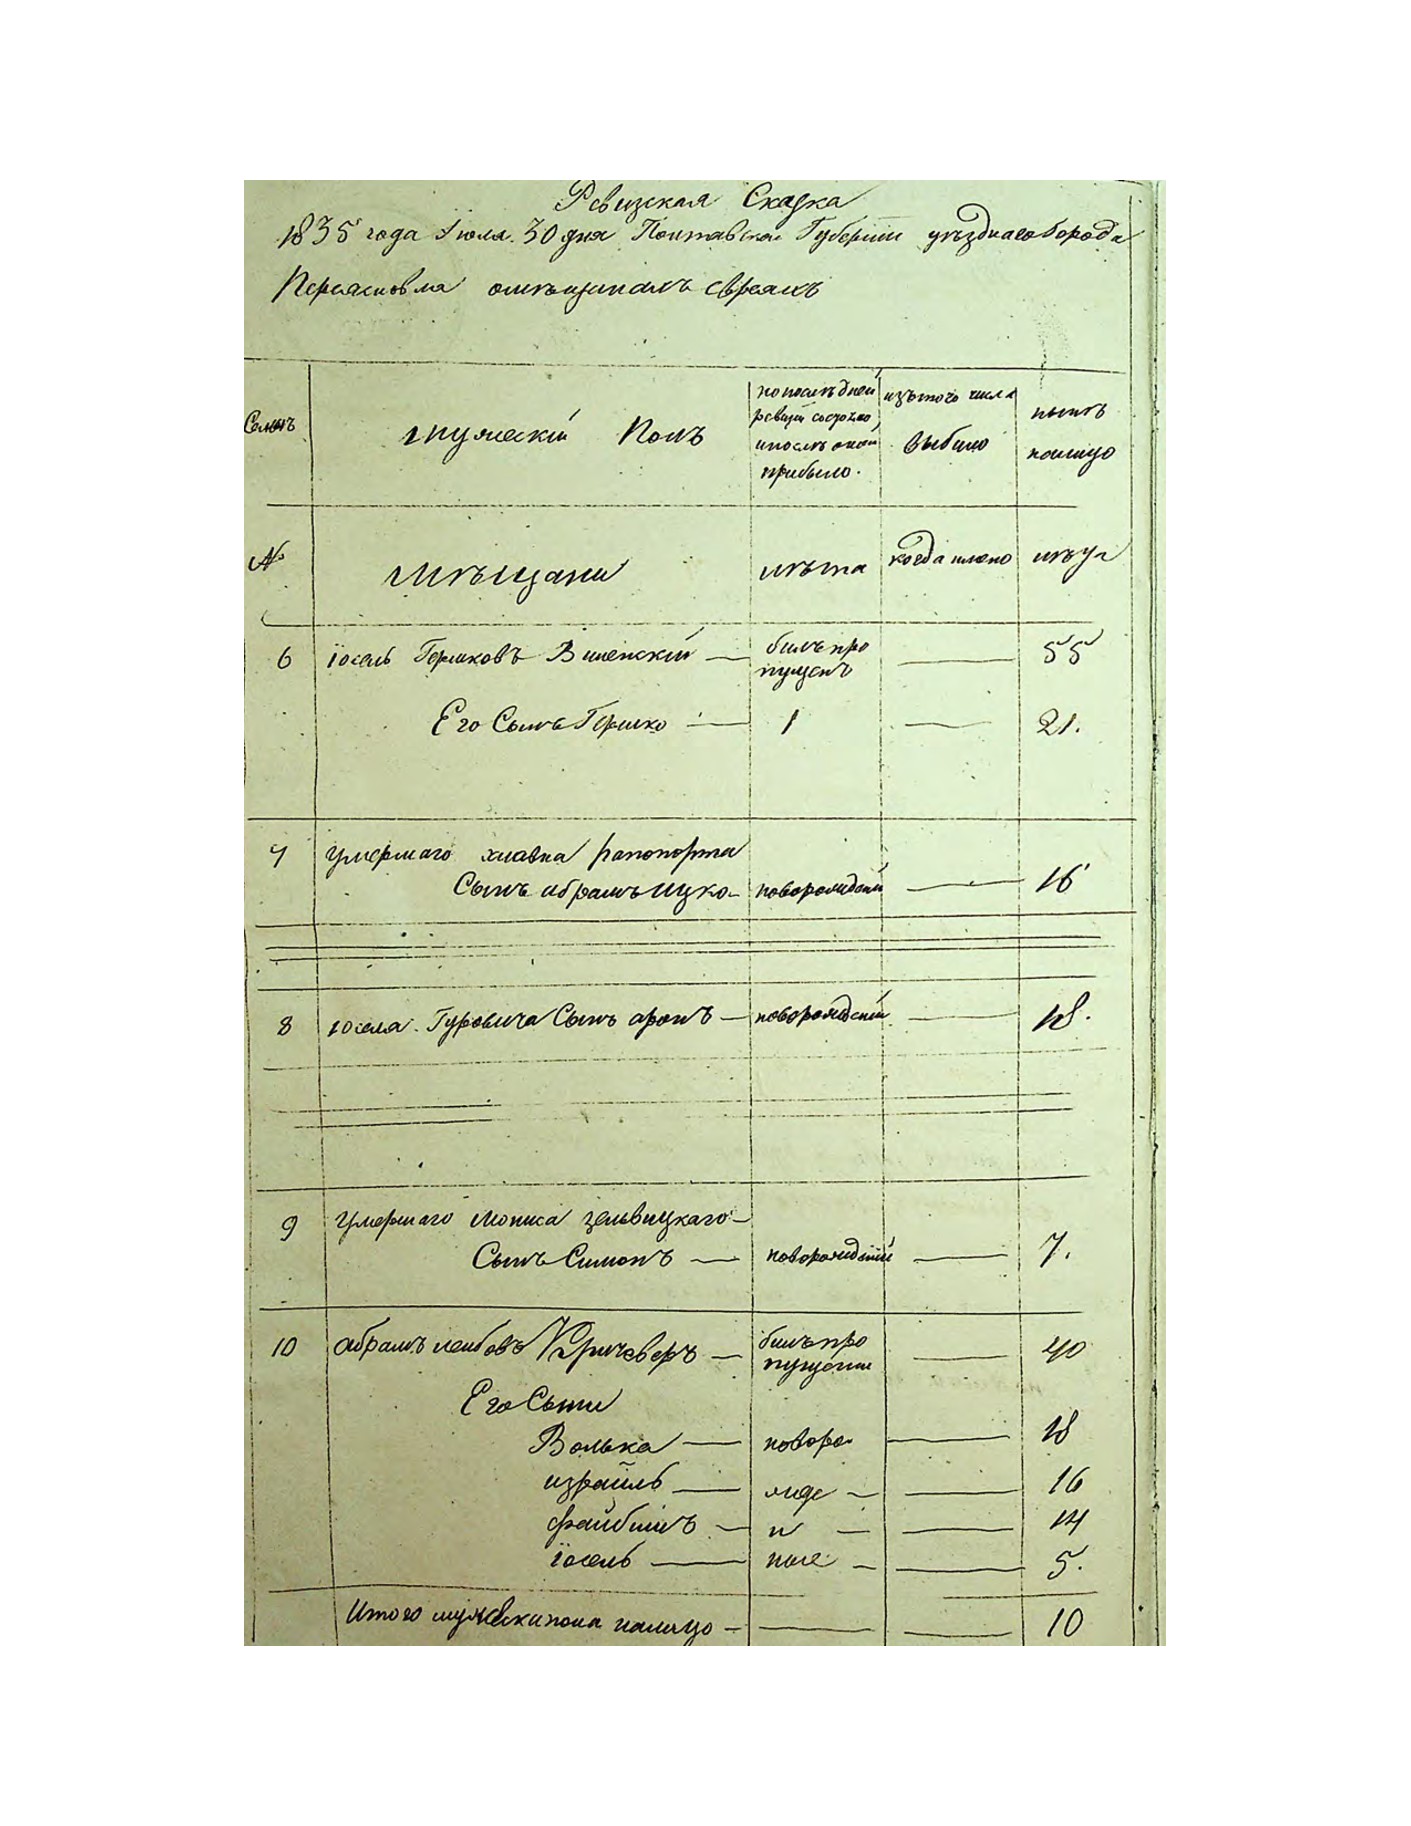 Ревизская Сказка
1835 года Июля 30 дня Полтавской Губернии уезднаго города
Переяславля омещанахъ евреяхъ
Семьи
мужескій Полъ
по последней
ревизіи состояло
и после оной
прибыло.
изътого числа
выбило
ныне
налицо
№
Мещани
лета
когда имено
лета
6 іосель Гершковъ Виленскій — билъ про
пущенъ — 55
Его Сынъ Гершко — 1 — 21.
7 умершаго хлавна рапопорта
Сынъ абрамъ ицко — новорожденій — 16
8 іоселя Гуровича Сынъ аронъ — новорожденій — 18.
9 Умершаго мониса зельвицкаго —
Сынъ Симонъ — новорожденій — 7.
10 абрамъ лейбовъ Кричеверъ — билъ про
пущенни — 40
Его Сыни
Волька — новоро — 18
израйль — жде — 16
файбишъ — н — 14
іосель — ние — 5.
Итого мужескаго пола налицо — 10